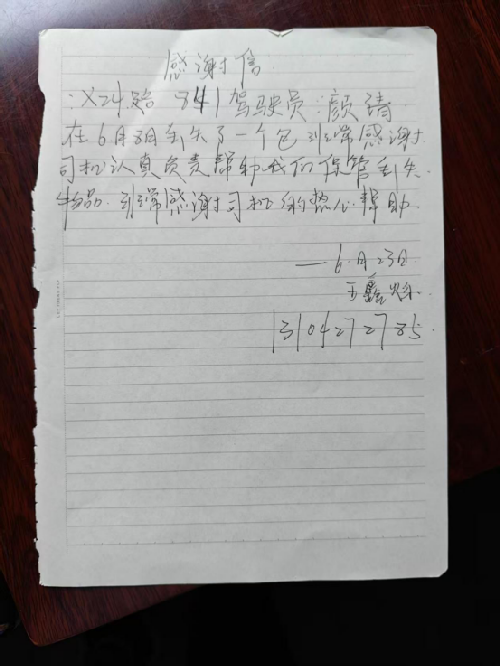 感谢信
:X24路 841驾驶员:颜靖
在6月8日丢失了一个包 非常感谢
司机认真负责帮助我们保管丢失
物品.非常感谢司机的热心帮助.
—6.月23日
王鑫
13104272785